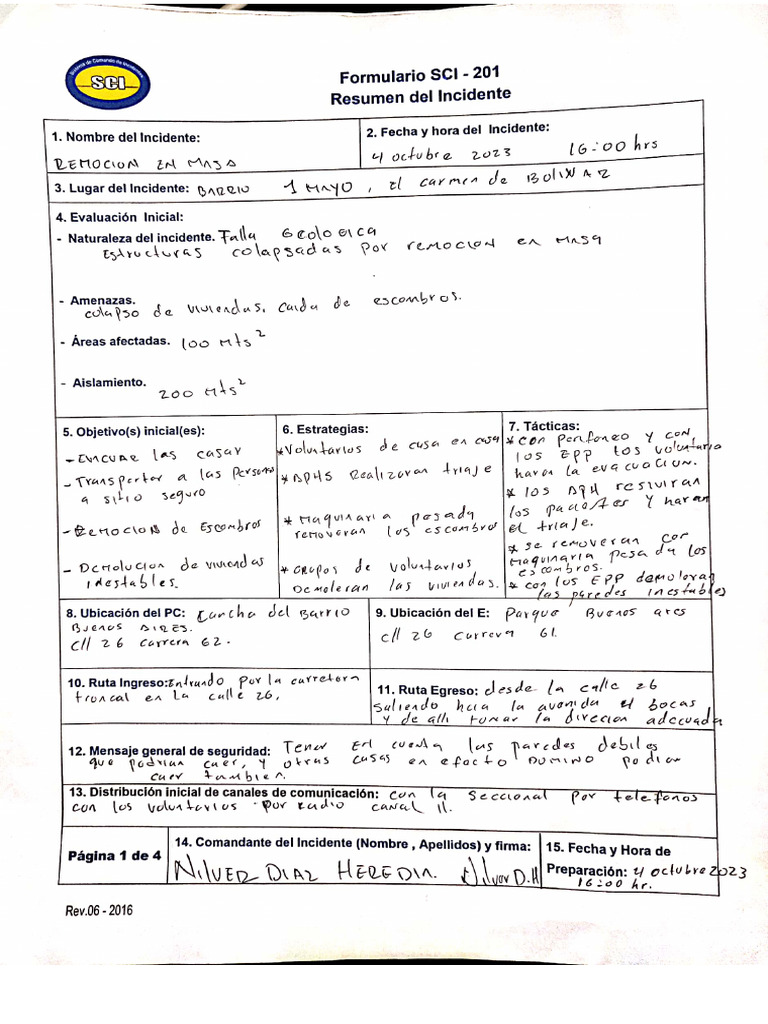 Sistema de Comando de Incidentes
SCI
Formulario SCI - 201
Resumen del Incidente
1. Nombre del Incidente:
REMOCION EN MASA
2. Fecha y hora del Incidente:
4 octubre 2023 16:00 hrs
3. Lugar del Incidente: BARRIO 1 MAYO, El carmen de BOLIVAR
4. Evaluación Inicial:
- Naturaleza del incidente. Falla GEOLOGICA
Estructuras colapsadas por remocion en masa
- Amenazas.
colapso de viviendas, caida de escombros.
- Áreas afectadas. 100 Mts2
- Aislamiento.
200 Mts2
5. Objetivo(s) inicial(es):
- Evacuar las casas
- Transportar a las Personas
a sitio seguro
- Remocion de Escombros
- Demolucion de viviendas
inestables.
6. Estrategias:
*Voluntarios de casa en casa
*APHS Realizaran triaje
* Maquinaria pesada
removeran los escombros
* Grupos de voluntarios
DEMOLERAN las viviendas.
7. Tácticas:
* con perifoneo y con
los EPP los voluntario
haran la evacuacion.
* los APH resiviran
los pacientes y haran
el triaje.
* se removeran con
maquinaria pesada los
escombros.
* con los EPP demoleran
las paredes inestables
8. Ubicación del PC: Cancha del Barrio
Buenos AIRES.
c// 26 carrera 62.
9. Ubicación del E: Parque Buenos ares
c// 26 carrera 61.
10. Ruta Ingreso: Entrando por la carretera
troncal en la calle 26.
11. Ruta Egreso: desde la calle 26
saliendo hcia la avenida el bocas
y de alli tomar la direcion adecuada
12. Mensaje general de seguridad: Tener En cuenta las paredes debiles
que podrian caer, y otras casas en efecto DOMINO podian
caer tambien.
13. Distribución inicial de canales de comunicación: con la Seccional por telefonos
con los voluntarios por radio canal 11.
Página 1 de 4
14. Comandante del Incidente (Nombre , Apellidos) y firma:
NILVER DIAZ HEREDIA. Nilver D.H
15. Fecha y Hora de
Preparación: 4 octubre 2023
16:00 hr.
Rev.06 - 2016